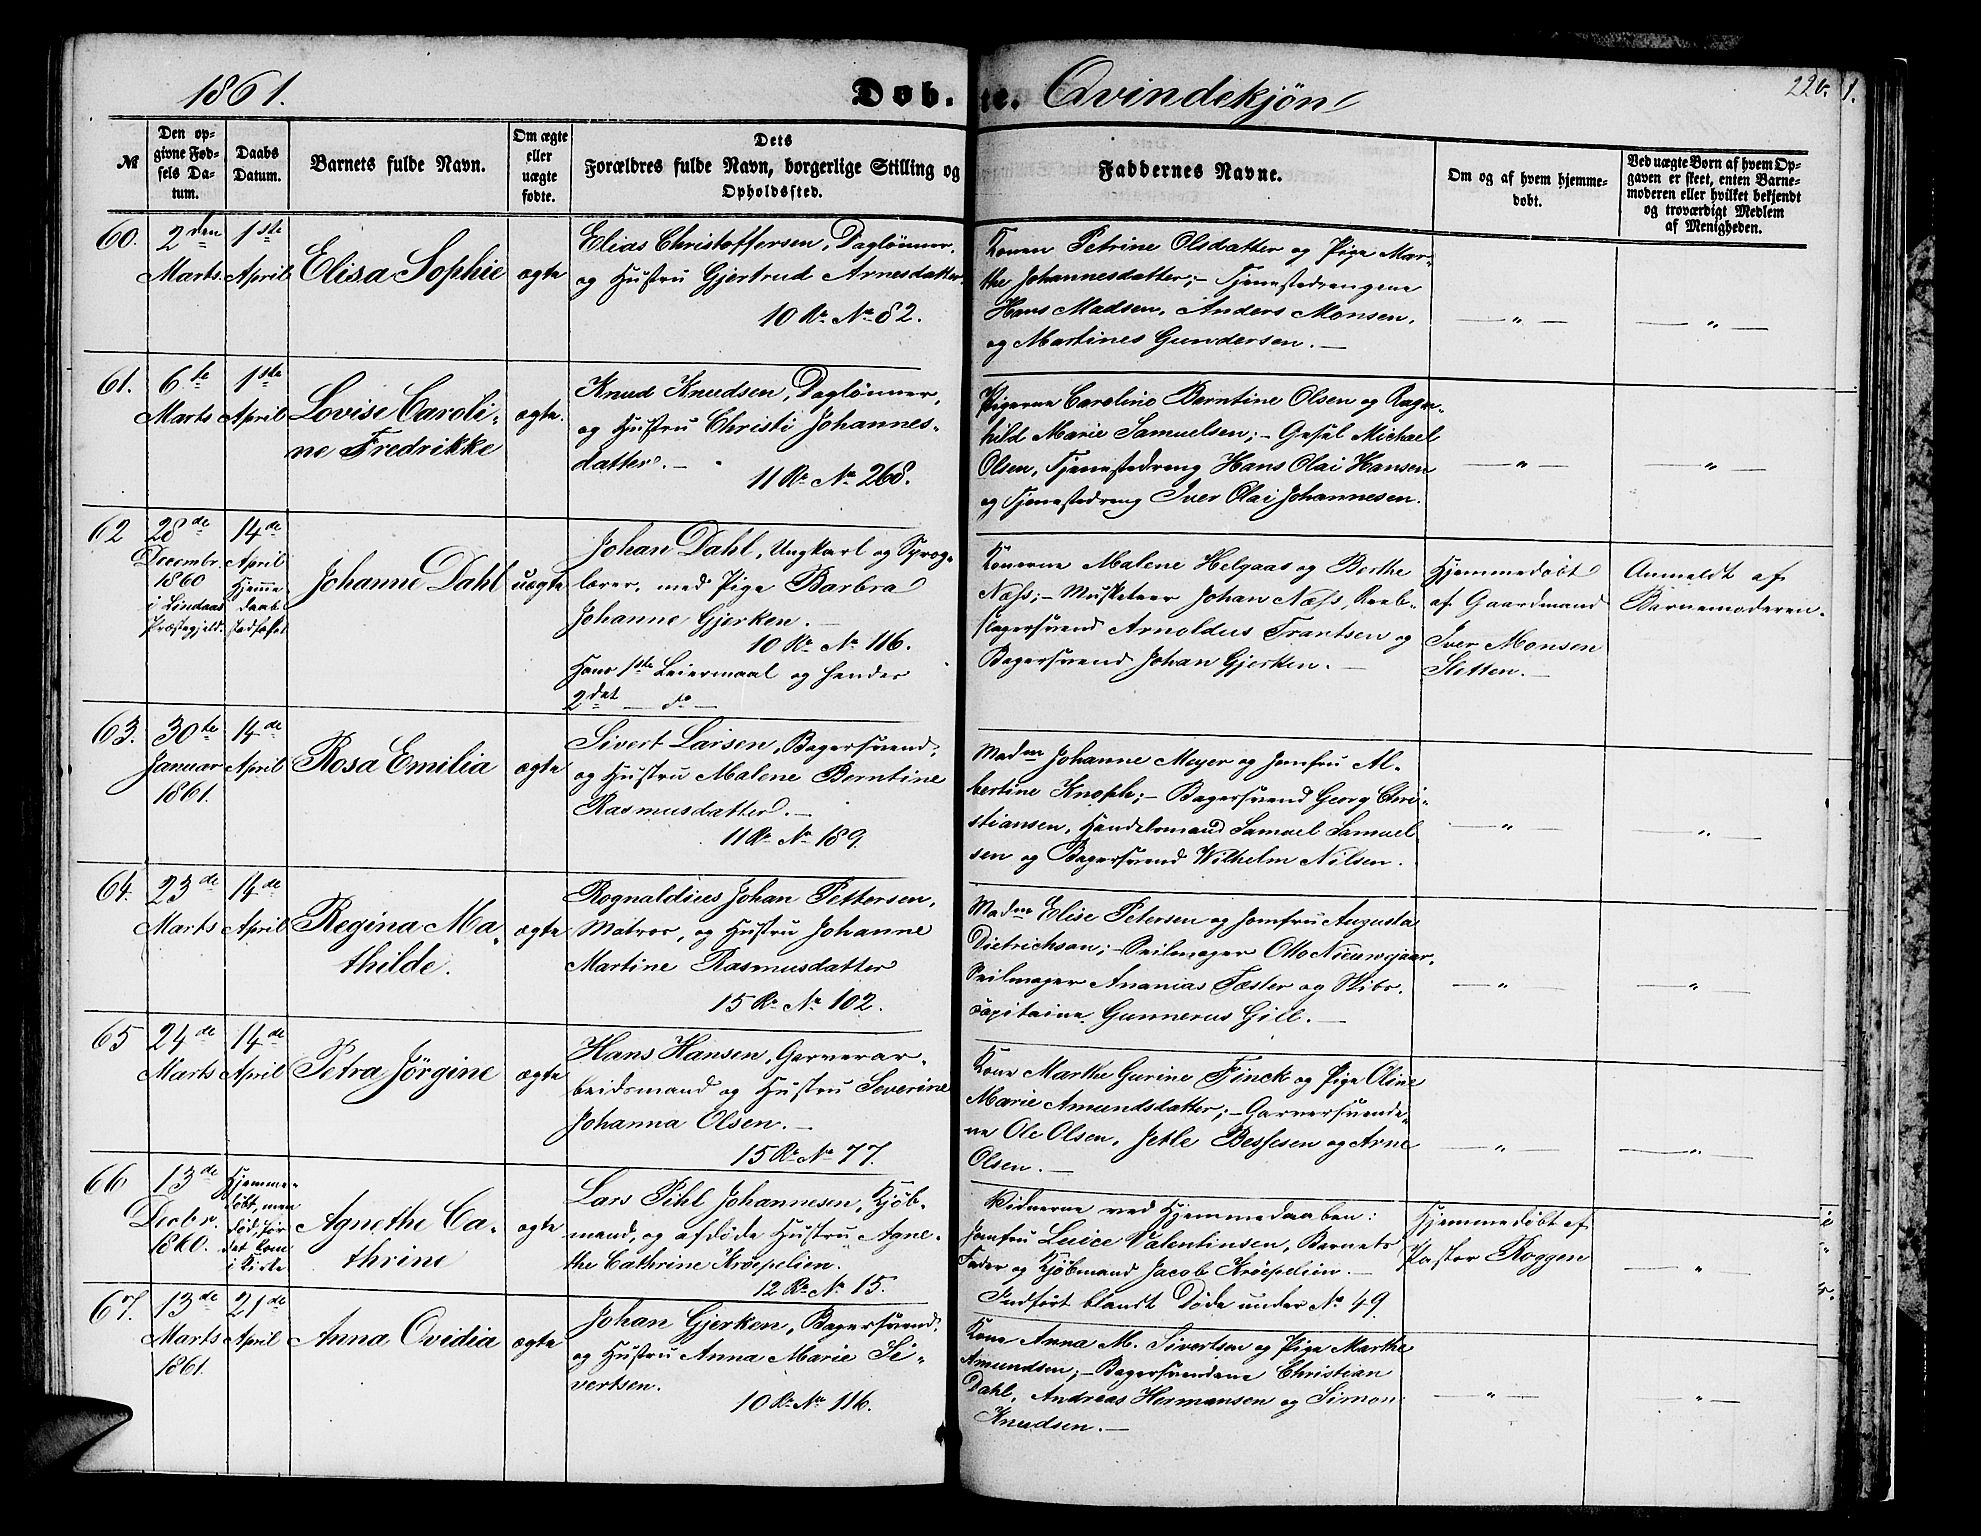 1861.
Døb.
te. Qvindekjøn
220.
1.
№
Den op-
givne Fød-
sels Da-
tum.
Daabs
Datum.
Barnets fulde Navn.
Om ægte
eller
uægte
fødte.
Dets
Forældres fulde Navn, borgerlige Stilling og
Opholdssted.
Faddernes Navne.
Om og af hvem hjemme-
døbt.
Ved uægte Børn af hvem Op-
gaven er skeet, enten Barne-
moderen eller hvilket bekjendt
og troværdigt Medlem
af Menigheden.
60.
2den
Marts.
1ste
April
Elisa Sophie
ægte
Elias Christoffersen, Daglønner,
og Hustru Gjertrud Arnesdatter.
10 R. No 82.
Konen Petrine Olsdatter og Pige Mar-
the Johannesdatter; - Tjenestedrengene
Hans Madsen, Anders Monsen,
og Martines Gundersen. —
— " —
— " —
61.
6te
Marts
1ste
April
Lovise Caroli-
ne Fredrikke
ægte.
Knud Knudsen, Daglønner,
og Hustru Christi Johannes-
datter. -
11 R. No 268.
Pigerne Caroline Berntine Olsen og Ragn-
hild Marie Samuelsen; - Gesel Michael
Olsen, Tjenestedreng Hans Olai Hansen
og Tjenestedreng Iver Olai Johannesen.
— " —
— " —
62
28de
Decembr.
1860
i Lindaas
Præstegjeld.
14de
April
Hjemme-
daab
stadfæstet
Johanne Dahl
uægte
Johan Dahl, Ungkarl og Sprog-
lærer, med Pige Barbra
Johanne Gjerken. —
10 R. No 116.
Hans 1ste Leiermaal og hendes
2det — do —
Konerne Malene Helgaas og Berthe
Næss; - Musketeer Johan Næss, Reeb-
slagersvend Arnoldus Frantsen og
Bagersvend Johan Gjerken. —
Hjemmedøbt
af Gaardmand
Iver Monsen
Sletten. —
Anmeldt af
Barnemoderen.
63.
30te
Januar
1861.
14de
April
Rosa Emilia
ægte
Sivert Larsen, Bagersvend,
og Hustru Malene Berntine
Rasmusdatter. —
11 R. No 189.
Madm Johanne Meyer og Jomfru Al-
bertine Knoph; - Bagersvend Georg Chri-
stiansen, Handelsmand Samuel Samuel-
sen og Bagersvend Wilhelm Nilsen.
— " —
— " —
64.
23de
Marts
14de
April
Regina Ma-
thilde.
ægte
Rognaldius Johan Pettersen,
Matros, og Hustru Johanne
Martine Rasmusdatter
15 R. No 102.
Madm Elise Petersen og Jomfru Augusta
Dietrichson; - Seilmager Otto Nieuwejaar,
Seilmager Ananias Fæster og Skibs-
capitaine Gunnerus Gill. —
— " —
— " —
65
24de
Marts
14de
April
Petra Jörgine
ægte
Hans Hansen, Garverar-
beidsmand og Hustru Severine
Johanna Olsen. —
15 R. No 77.
Kone Marthe Gurine Finck og Pige Oline
Marie Amundsdatter; - Garversvende-
ne Ole Olsen, Jetle Bessesen og Arne
Olsen. —
— " —
— " —
66
13de
Decbr.
1860.
Hjemme-
døbt, men
død før
det kom
i Kirke
Agnethe Ca-
thrine
ægte
Lars Pihl Johannesen, Kjøb-
mand, og afdøde Hustru Agne-
the Cathrine Kröepelien.
12 R. No 15.
Vidnerne ved Hjemmedaaben:
Jomfru Luice Valentinsen, Barnets
Fader og Kjøbmand Jacob Kröepelien. —
Indført blandt Døde under No 49.
Hjemmedøbt af
Pastor Roggen
— " —
67.
13de
Marts
1861.
21de
April
Anna Ovidia
ægte
Johan Gjerken, Bagersvend,
og Hustru Anna Marie Si-
vertsen.
10 R. No 116.
Kone Anna M. Sivertsen og Pige Marthe
Amundsen; - Bagersvendene Christian
Dahl, Andreas Hermansen og Simon
Knudsen. —
— " —
— " —